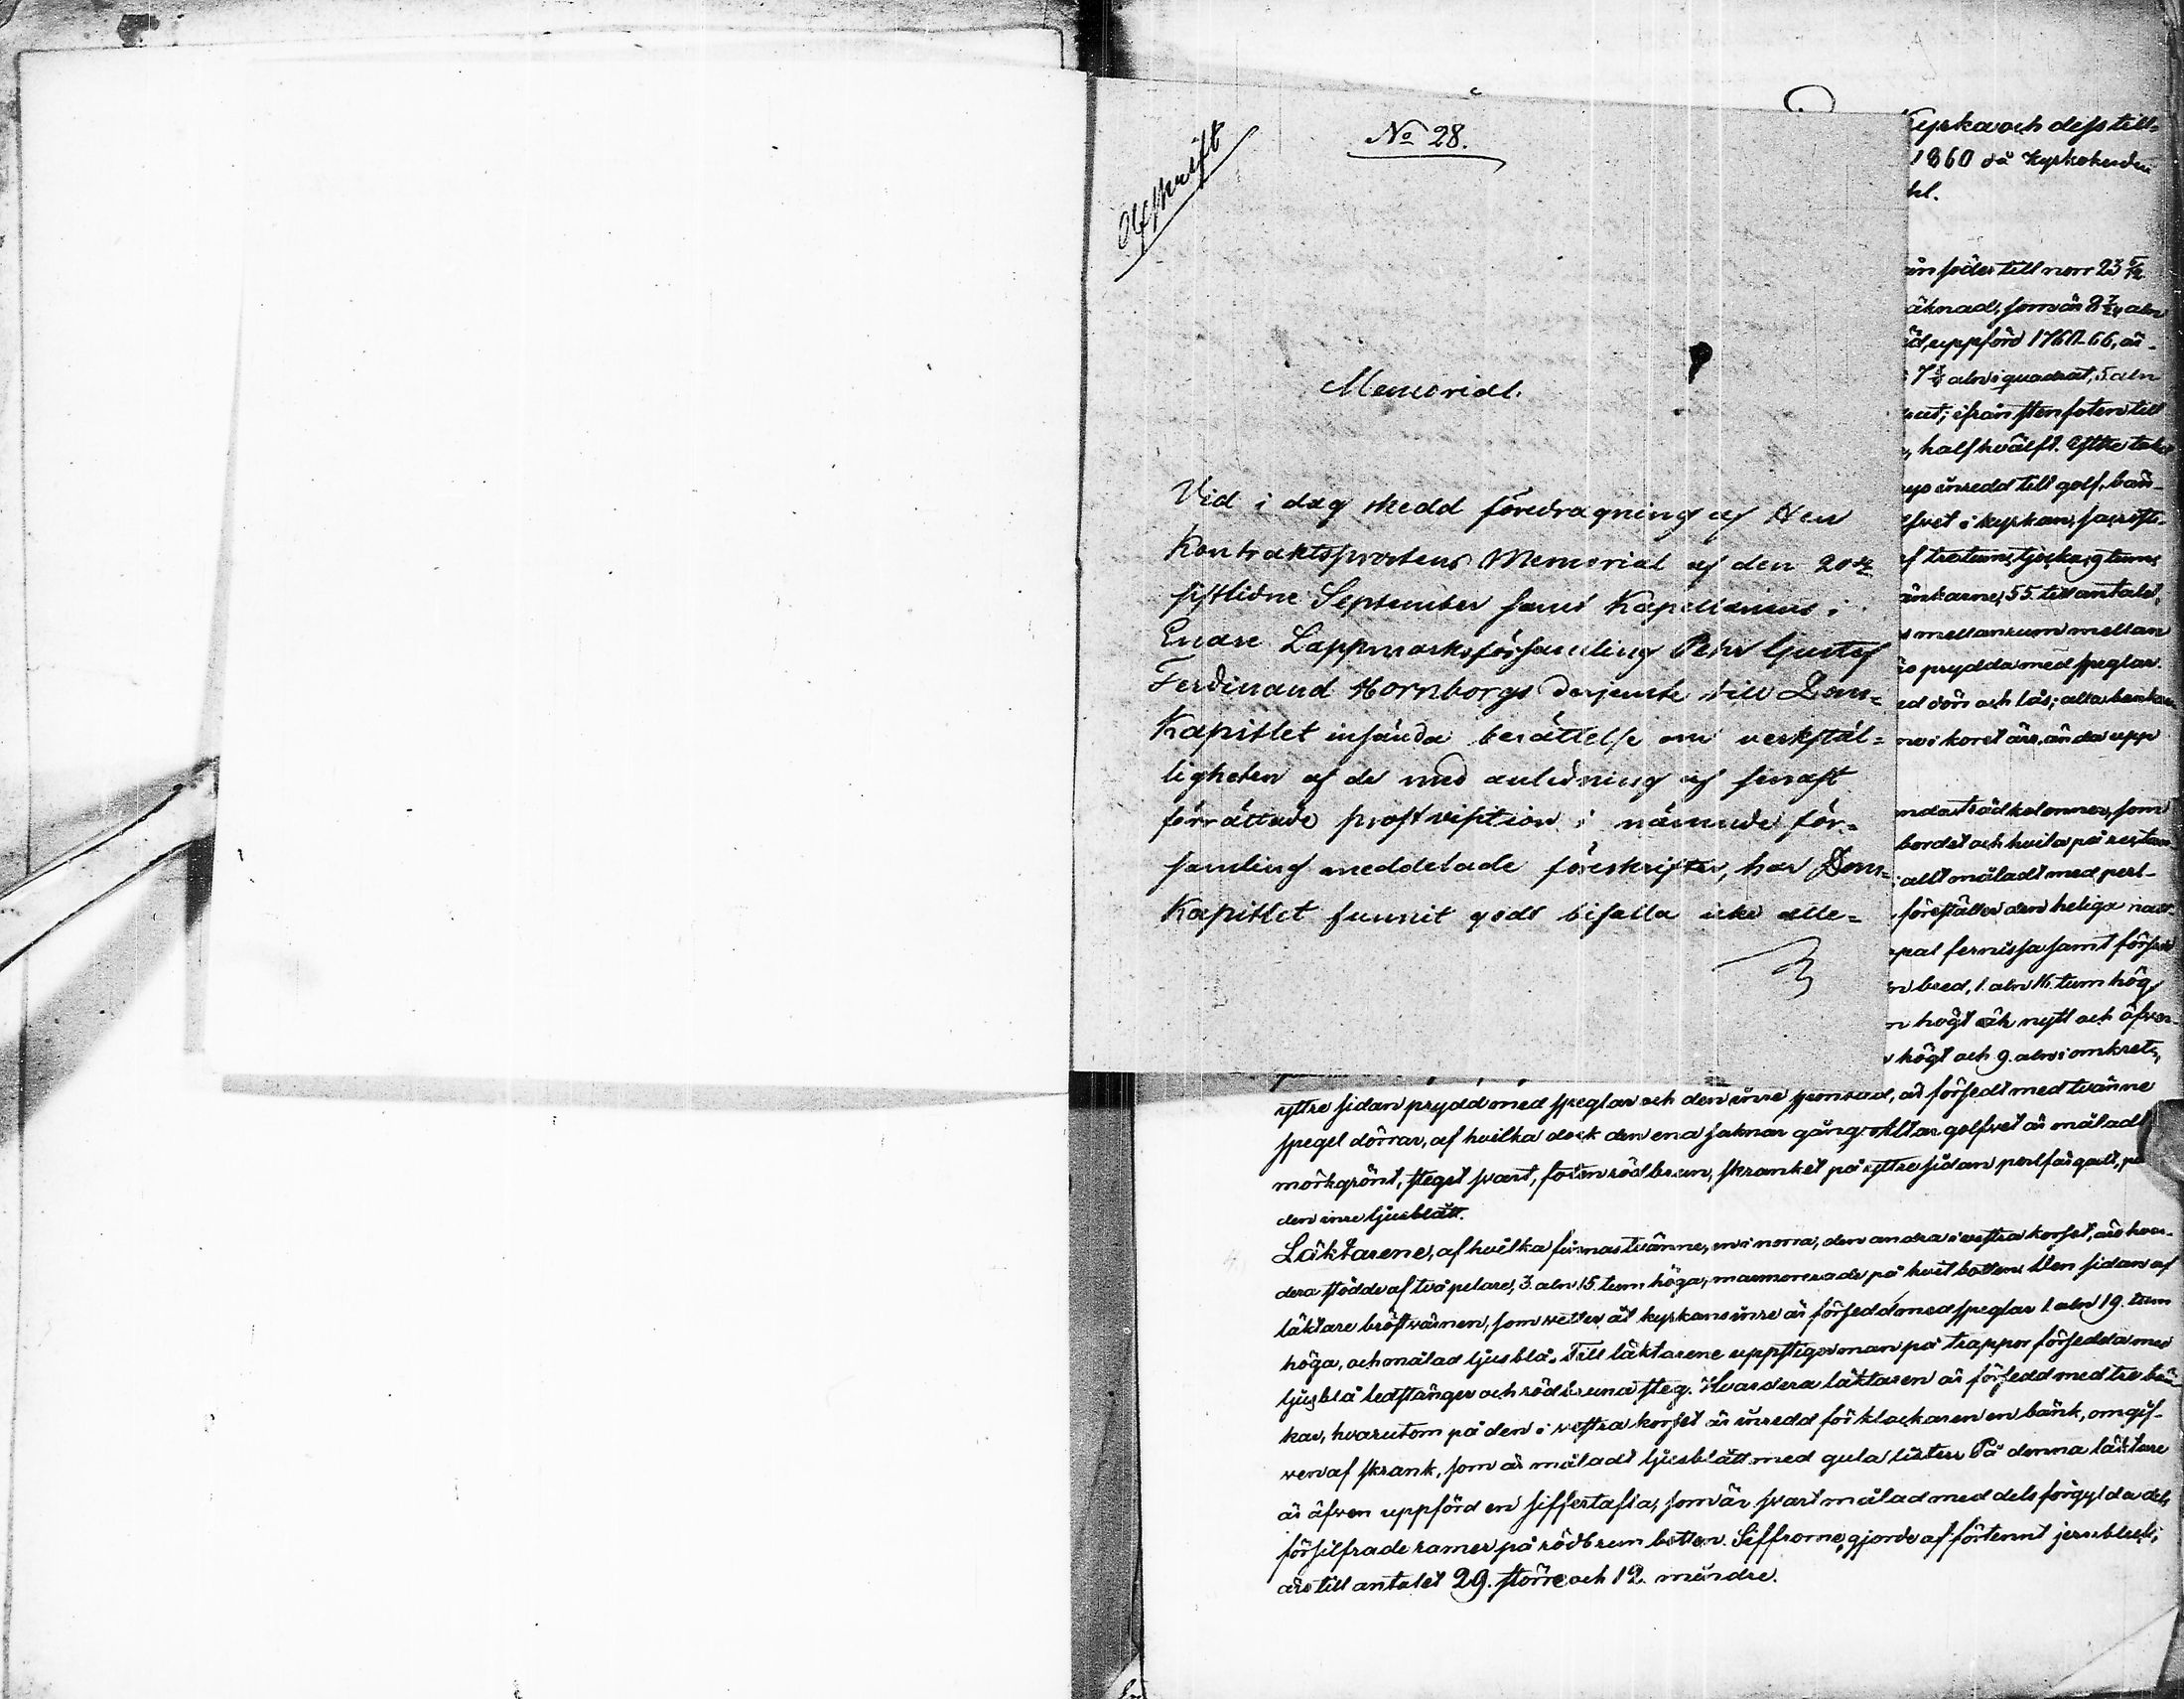 Afskrift
No 28.
Memorial.
Vid i dag skedd föredragning af Herr
Kontraktsprostens Memorial af den 20de
sistlidne September samt Kapellanens i
Enare Lappmarksförsamling Pehr Gustaf
Ferdinand Hornborgs derjemte till Dom-
Kapitlet insända berättelse om verkstäl-
ligheten af de med anledning af senast
förrättade prostvisition i nämnde för-
samling meddelade föreskrifter, har Dom-
Kapitlet funnit godt bifalla icke alle-
Kyrka och dess till-
1860 då Kyrkoherden
hl.
söder till norr 23 5/12
äknad, som är 8 7/24 aln
uppförd 1760-66, är
7 3/4 aln i quadrat, 5 aln
ifrån stenfoten till
, half hvälft. Efter
inredd till golf, bän-
i kyrkan, sacristi-
af tretums tjocka, 9 tums
änkarne, 55. till antalet,
mellanrum mellan
prydda med speglar.
ed dörr och lås; alla bänkar
i koret äro, ända upp
kolonner, som
bordet och hvila på
allt måladt med perl-
, föreställer den heliga natt
fernissa samt försedd
n bred, 1. aln 16. tum hög,
n högt och nytt och öfver-
högt och 9. aln i omkrets,
yttre sidan prydd med speglar och den inre ponsad, är försedt med tvänne
spegel dörrar, af hvilka dock den ena saknar gång. Altar golfvet är måladt
mörkgrönt, steget svart, foten rödbrun, skranket på yttre sidan perlfärgadt, på
den inre ljusblått.
Läktarene, af hvilka finnas tvänne, en i norra, den andra i vestra korset, äro hvar-
dera stödde af två pelare, 3. aln 15. tum höga, marmorerade på hvit botten. Den sidan af
läktare bröstvärnen, som vetter åt kyrkans inre är försedd med speglar 1. aln 19. tum
höga, och målad ljusblå. Till läktarene uppstiger man på trappor försedda med
ljusblå ledstänger och rödbruna steg. Hvardera läktaren är försedd med tre bän-
kar, hvarutom på den i vestra korset är inredd för klockaren en bänk, omgif-
ven af skrank, som är måladt ljusblått med gula lister. På denna läktare
är äfven uppförd en siffertafla, som är svart målad med dels förgylda dels
försilfrade ramer på rödbrun botten. Siffrorne, gjorde af förtennt jernbleck,
äro till antalet 29. större och 12. mindre.